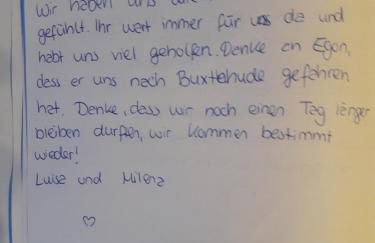 Wir haben uns
gefühlt. Ihr wart immer für uns da und
habt uns viel geholfen. Danke an Egon,
dass er uns nach Buxtehude gefahren
hat. Danke, dass wir noch einen Tag länger
bleiben durften, wir kommen bestimmt
wieder!
Luise und Milena
♡